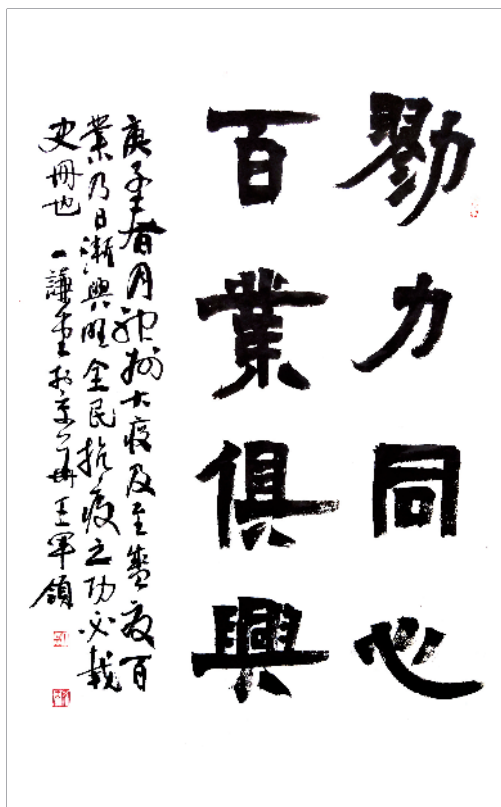 勠力同心
百業俱興
庚子春月神州大疫及至
百
業乃日漸興旺全民抗疫之功必載
史冊也 一謙堂於京 王軍領